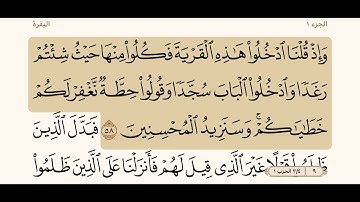 الجزء ١
البقرة
وَإِذْ قُلْنَا ٱدْخُلُوا۟ هَـٰذِهِ ٱلْقَرْيَةَ فَكُلُوا۟ مِنْهَا حَيْثُ شِئْتُمْ
رَغَدًا وَٱدْخُلُوا۟ ٱلْبَابَ سُجَّدًا وَقُولُوا۟ حِطَّةٌ نَّغْفِرْ لَكُمْ
خَطَـٰيَـٰكُمْ ۚ وَسَنَزِيدُ ٱلْمُحْسِنِينَ ٥٨ فَبَدَّلَ ٱلَّذِينَ
ظَلَمُوا۟ قَوْلًا غَيْرَ ٱلَّذِى قِيلَ لَهُمْ فَأَنزَلْنَا عَلَى ٱلَّذِينَ ظَلَمُوا۟
٩
الحزب ١